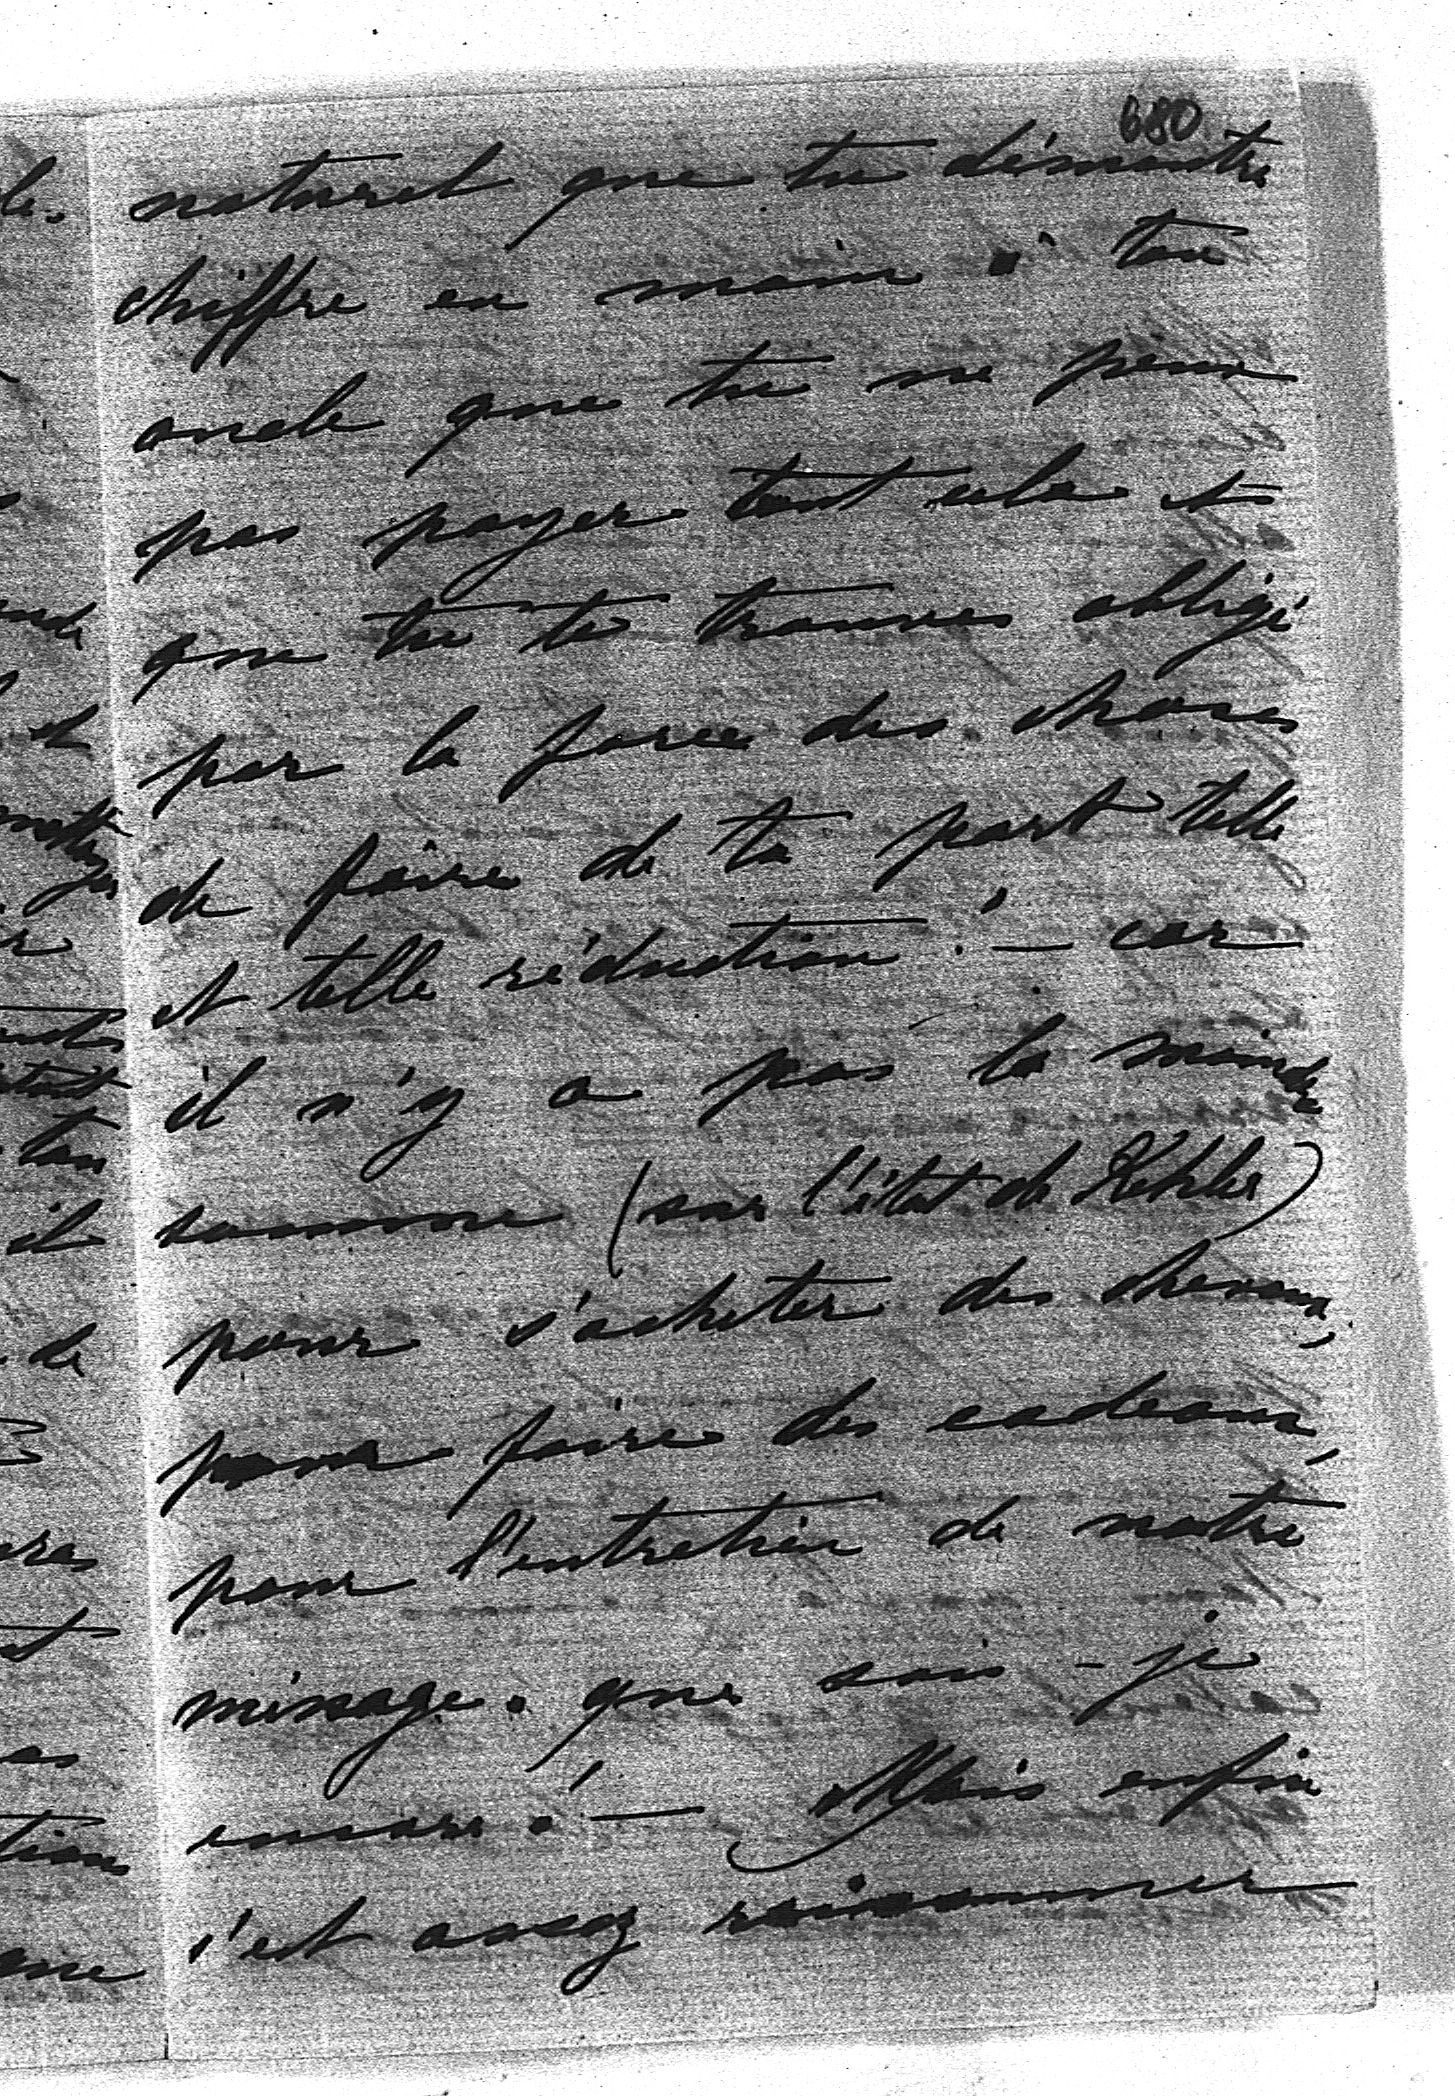 680
naturel que tu démontre
chiffre en main à ton
oncle que tu ne peux
pas payer tout cela et
que tu te trouves obligé
par la force des choses
de faire de ta part telle
et telle réduction! — car
il n'y a pas la moindre
somme (sur l'état de Kehler)
pour s'acheter des chevaux,
pour faire des cadeaux,
pour l'entretien de notre
ménage. que sais-je
encore! — Mais enfin
c'est assez raisonner